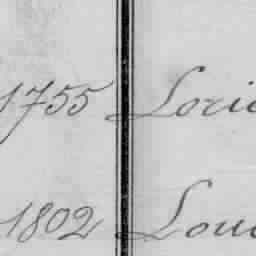 1755 Loric
1802 Lou